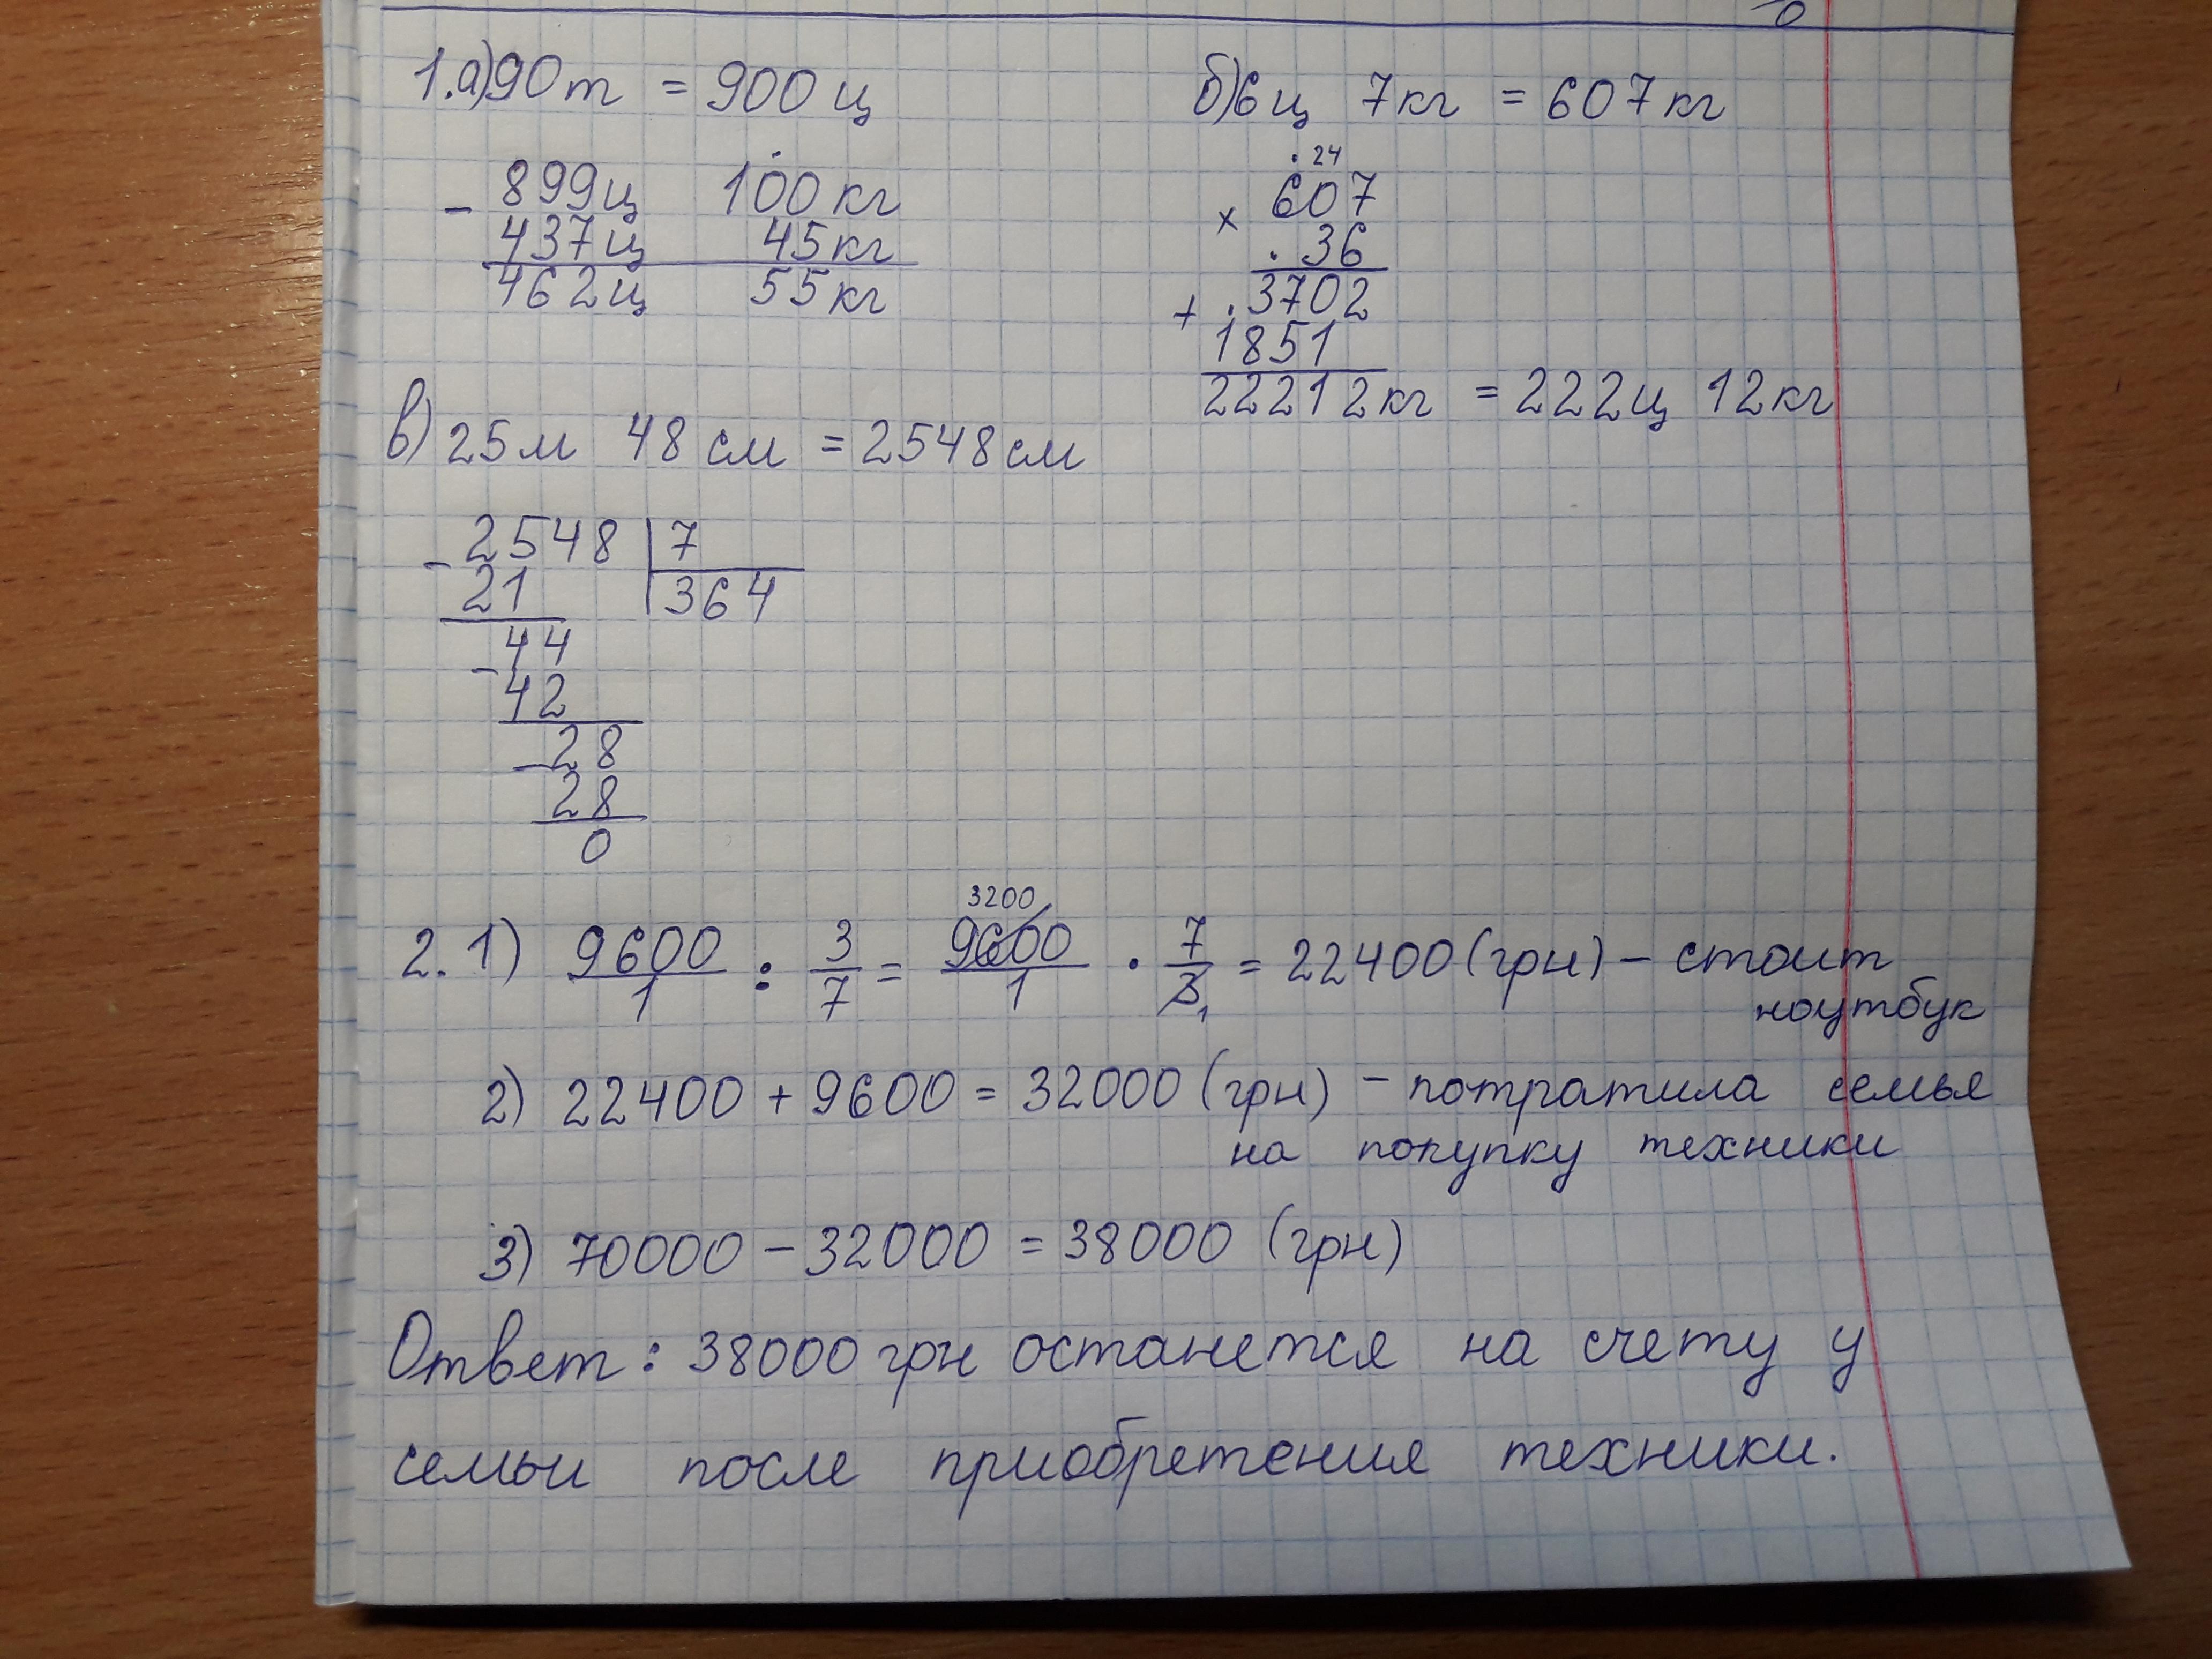 1.а) 90 т = 900 ц
- 899 ц 100 кг
437 ц 45 кг
462 ц 55 кг
б) 6 ц 7 кг = 607 кг
24
× 607
36
+ 3702
1851
22212 кг = 222 ц 12 кг
в) 25 м 48 см = 2548 см
- 2548 | 7
21 | 364
44
- 42
28
- 28
0
2. 1) 9600/1 : 3/7 = 9600/1 · 7/3 = 22400 (грн) – стоит
3200
1
ноутбук
2) 22400 + 9600 = 32000 (грн) – потратила семья
на покупку техники
3) 70000 – 32000 = 38000 (грн)
Ответ: 38000 грн останется на счету у
семьи после приобретения техники.